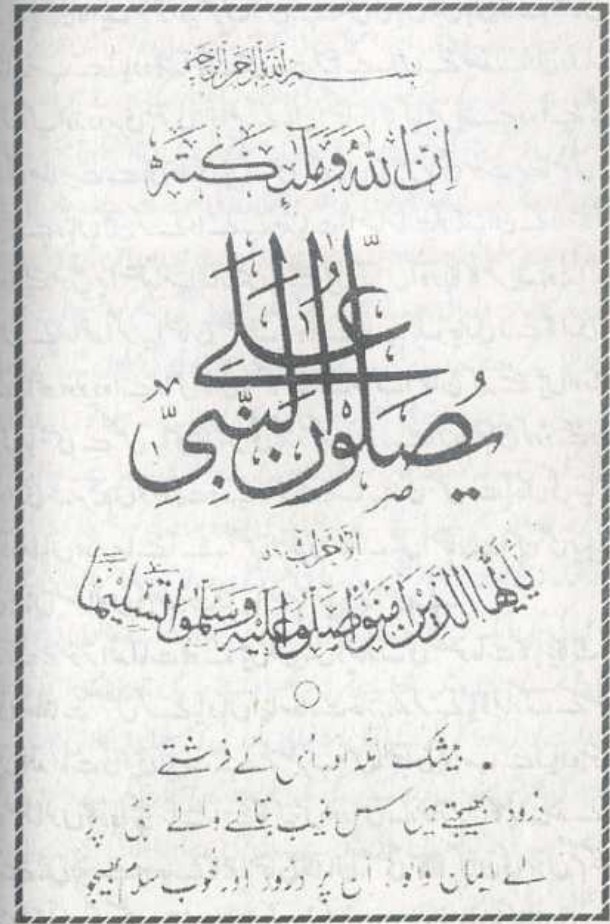 بسم الله الرحمن الرحيم
اِنَّ اللّٰهَ وَمَلٰٓئِكَتَهٗ
يُصَلُّوْنَ عَلَى النَّبِىِّ
الاحزاب
يٰٓاَيُّهَا الَّذِيْنَ اٰمَنُوْا صَلُّوْا عَلَيْهِ وَسَلِّمُوْا تَسْلِيْمًا
بیشک اللہ اور اس کے فرشتے
درود بھیجتے ہیں اس غیب بتانے والے نبی پر
اے ایمان والو! ان پر درود اور خوب سلام بھیجو